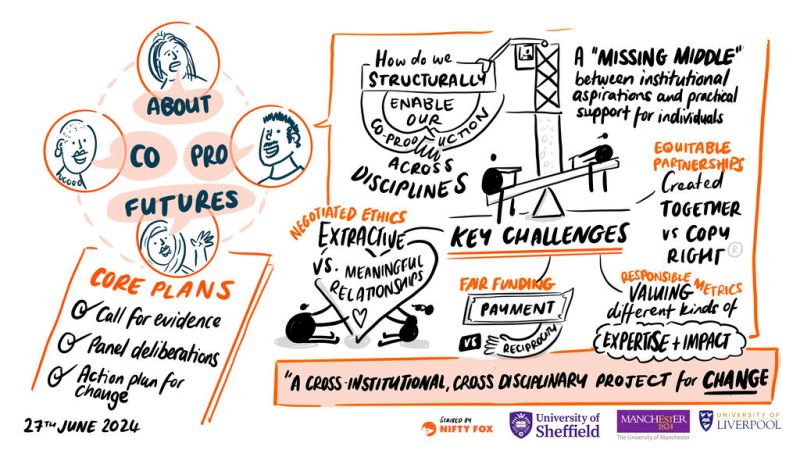 ABOUT
CO PRO
FUTURES
CORE PLANS
Call for evidence
Panel deliberations
Action plan for
change
27TH JUNE 2024
How do we
STRUCTURALLY
ENABLE
OUR
CO-PRODUCTION
ACROSS
DISCIPLINES
A "MISSING MIDDLE"
between institutional
aspirations and practical
support for individuals
EQUITABLE
PARTNERSHIPS
Created
TOGETHER
VS COPY
RIGHT ®
KEY CHALLENGES
NEGOTIATED ETHICS
EXTRACTIVE
VS. MEANINGFUL
RELATIONSHIPS
FAIR FUNDING
PAYMENT
VS RECIPROCITY
RESPONSIBLE METRICS
VALUING
different kinds of
EXPERTISE + IMPACT
"A CROSS-INSTITUTIONAL, CROSS DISCIPLINARY PROJECT for CHANGE
SCRIBED BY
NIFTY FOX
University of
Sheffield
MANCHESTER
1824
The University of Manchester
UNIVERSITY OF
LIVERPOOL